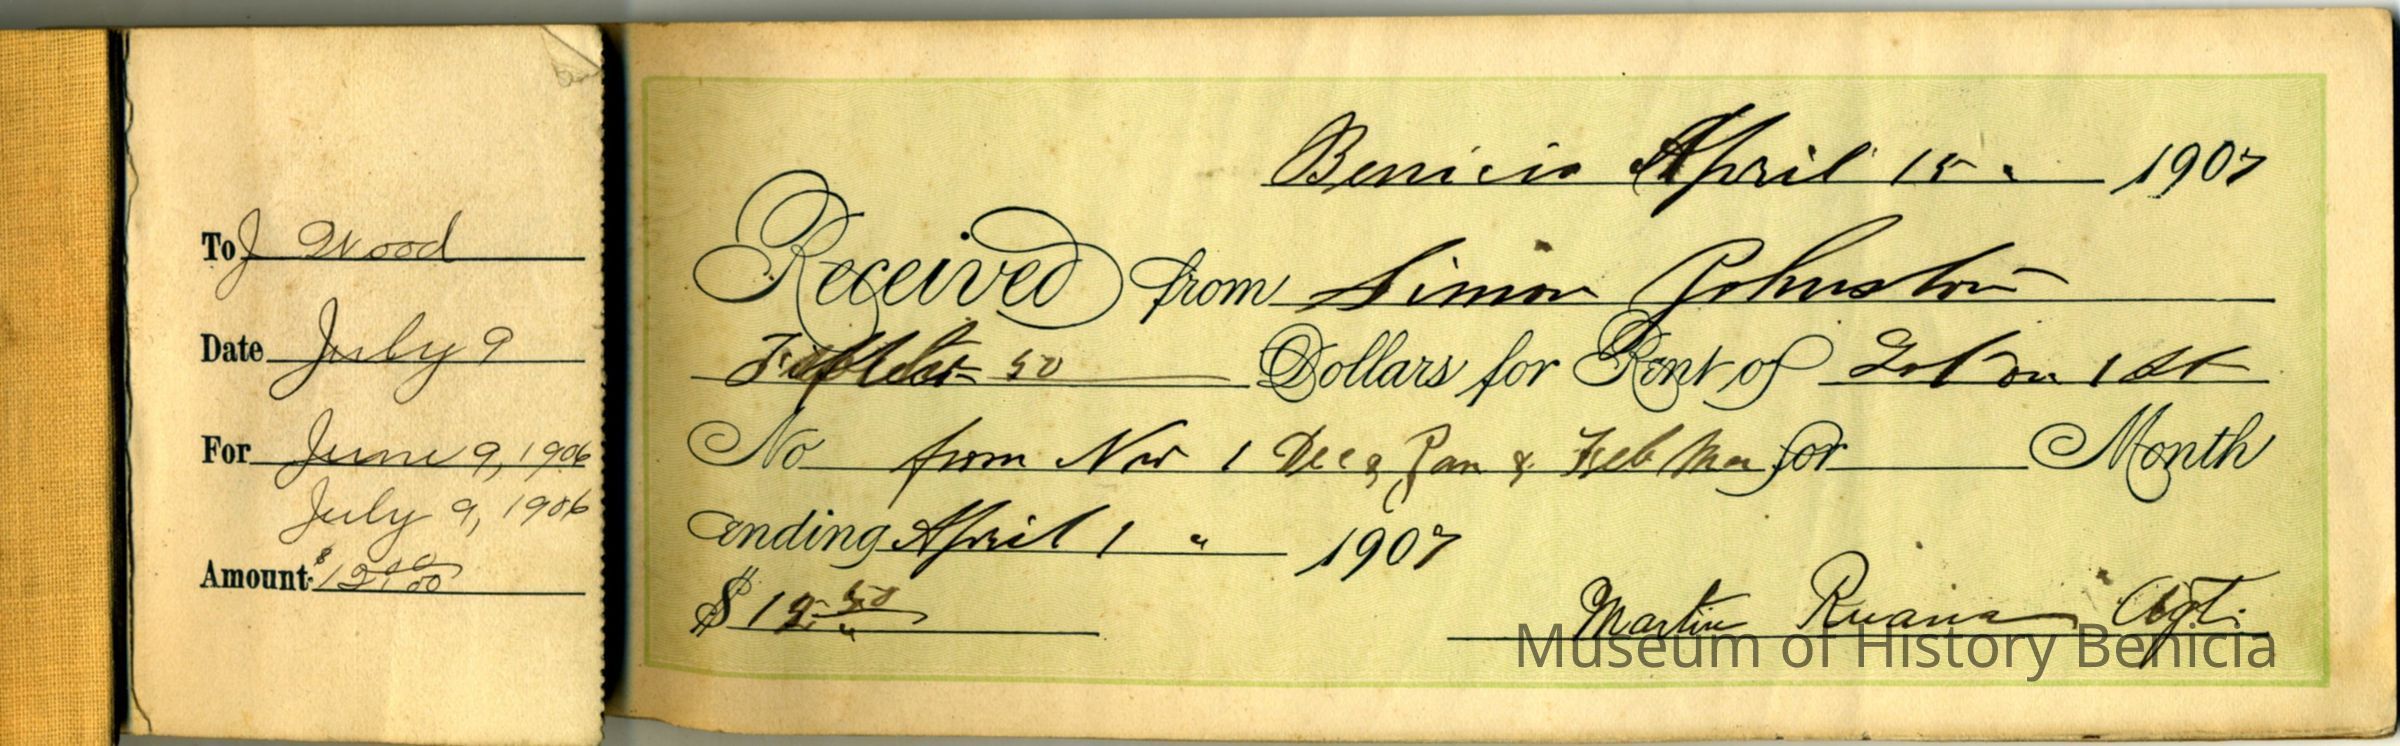 To J Wood
Date July 9
For June 9, 1906
July 9, 1906
Amount $12.00
Benicia April 15 " 1907
Received from Simon Johnston
50 Dollars for Rent of Lot on 1 St
No from Nov 1 Dec & Jan & Feb Mar for Month
ending April 1 " 1907
$ 12 50
Martin Ruana Agt.
Museum of History Benicia